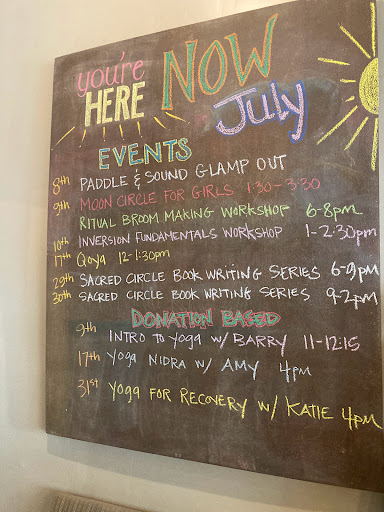 you're HERE NOW
July
EVENTS
8th PADDLE & SOUND GLAMP OUT
9th MOON CIRCLE FOR GIRLS 1:30-3:30
RITUAL BROOM MAKING WORKSHOP 6-8pm
10th INVERSION FUNDAMENTALS WORKSHOP 1-2:30pm
17th Qoya 12-1:30pm
29th SACRED CIRCLE BOOK WRITING SERIES 6-9pm
30th SACRED CIRCLE BOOK WRITING SERIES 9-2pm
DONATION BASED
9th INTRO TO yoga w/ BARRY 11-12:15
17th yoga NIDRA w/ AMY 4pm
31st yoga FOR RECOVERY w/ KATIE 4pm